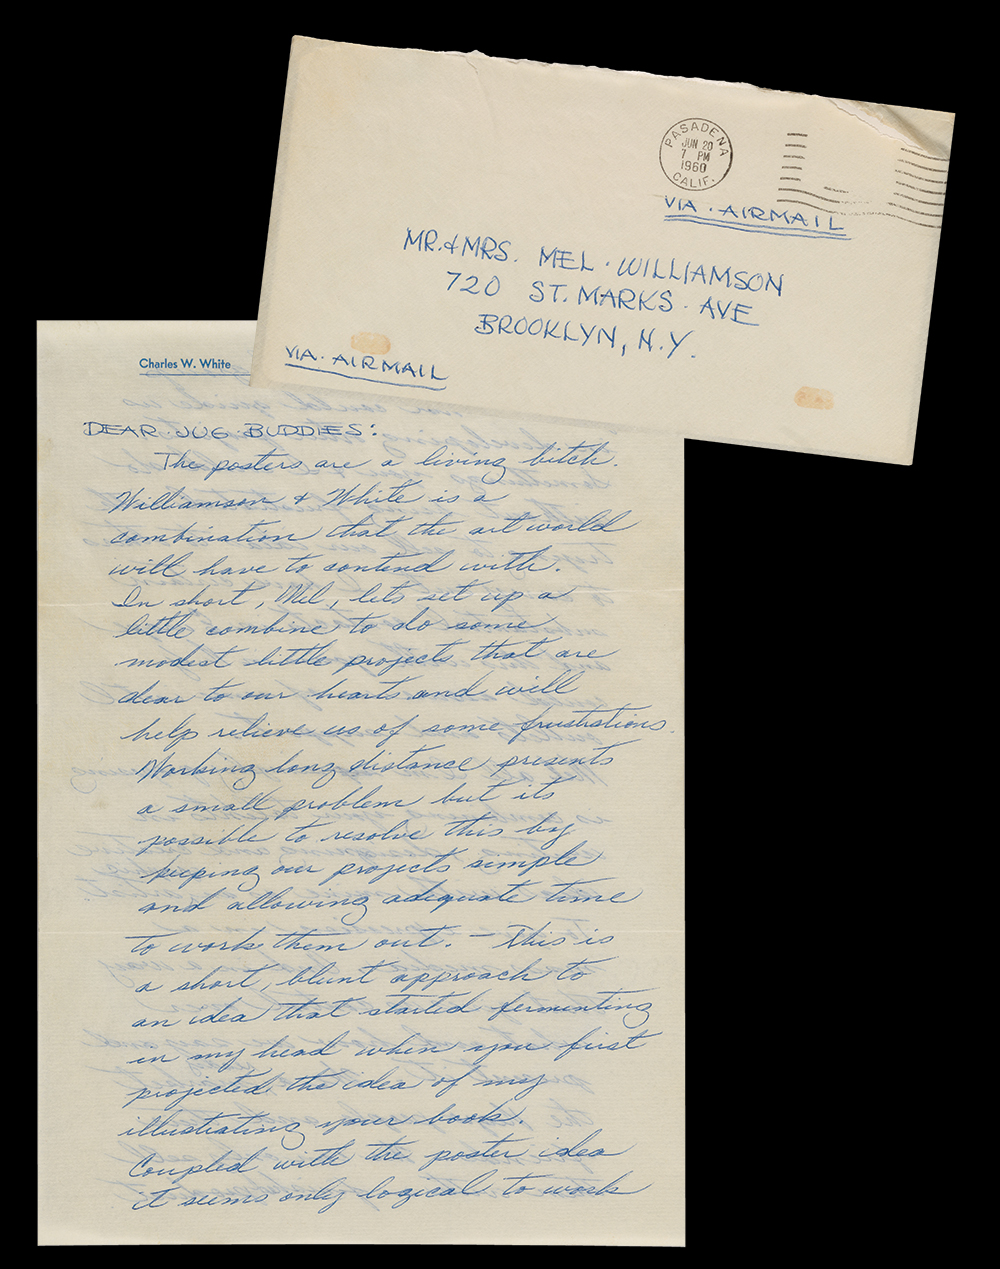 PASADENA
JUN 20
7 PM
1960
CALIF.
VIA · AIRMAIL
MR. & MRS. MEL · WILLIAMSON
720 ST. MARKS · AVE
BROOKLYN, N.Y.
VIA · AIRMAIL
Charles W. White
DEAR · JUG · BUDDIES:
The posters are a living bitch.
Williamson & White is a
combination that the art world
will have to contend with.
In short, Mel, lets set up a
little combine to do some
modest little projects that are
dear to our hearts and will
help relieve us of some frustrations.
Working long distance presents
a small problem but its
possible to resolve this by
keeping our projects simple
and allowing adequate time
to work them out. — This is
a short, blunt approach to
an idea that started fermenting
in my head when you first
projected the idea of my
illustrating your book.
Coupled with the poster idea
it seems only logical to work